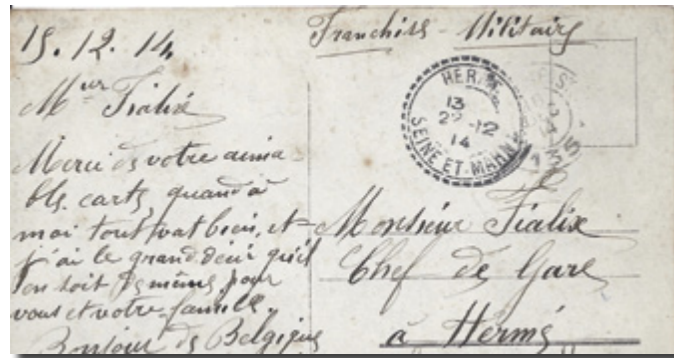 15.12.14
Franchise - Militaire
Mr Fialix
Merci de votre aima-
ble carte, quand à
moi tout vat bien, et
j'ai le grand désir qu'il
en soit de même pour
vous et votre famille.
Bonjour de Belgique
HERMÉ
13
22-12
14
SEINE ET MARNE
155
Monsieur Fialix
Chef de Gare
à Hermé